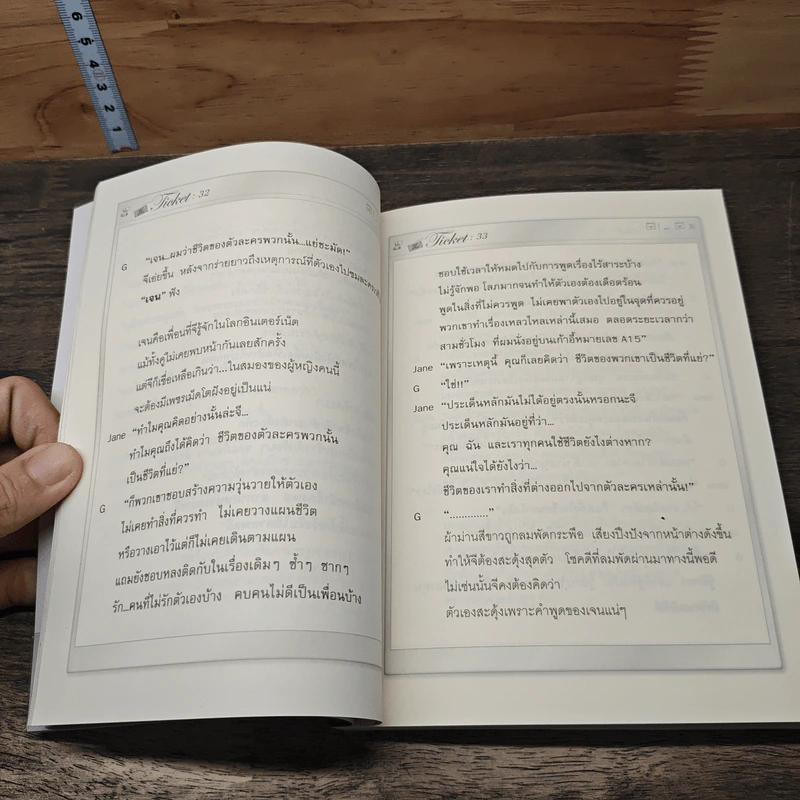 6 5 4 3 2 1
Ticket : 32
G "เจน...ผมว่าชีวิตของตัวละครพวกนั้น...แย่ชะมัด!"
จีเอ่ยขึ้น หลังจากร่ายยาวถึงเหตุการณ์ที่ตัวเองไปชมละครเวที
"เจน" ฟัง
เจนคือเพื่อนที่จีรู้จักในโลกอินเตอร์เน็ต
แม้ทั้งคู่ไม่เคยพบหน้ากันเลยสักครั้ง
แต่จีก็เชื่อเหลือเกินว่า...ในสมองของผู้หญิงคนนี้
จะต้องมีเพชรเม็ดโตฝังอยู่เป็นแน่
Jane "ทำไมคุณคิดอย่างนั้นล่ะจี...
ทำไมคุณถึงได้คิดว่า ชีวิตของตัวละครพวกนั้น
เป็นชีวิตที่แย่?"
G "ก็พวกเขาชอบสร้างความวุ่นวายให้ตัวเอง
ไม่เคยทำสิ่งที่ควรทำ ไม่เคยวางแผนชีวิต
หรือวางเอาไว้แต่ก็ไม่เคยเดินตามแผน
แถมยังชอบหลงติดกับในเรื่องเดิมๆ ซ้ำๆ ซากๆ
รัก...คนที่ไม่รักตัวเองบ้าง คบคนไม่ดีเป็นเพื่อนบ้าง
Ticket : 33
ชอบใช้เวลาให้หมดไปกับการพูดเรื่องไร้สาระบ้าง
ไม่รู้จักพอ โลภมากจนทำให้ตัวเองต้องเดือดร้อน
พูดในสิ่งที่ไม่ควรพูด ไม่เคยพาตัวเองไปอยู่ในจุดที่ควรอยู่
พวกเขาทำเรื่องเหลวไหลเหล่านี้เสมอ ตลอดระยะเวลากว่า
สามชั่วโมง ที่ผมนั่งอยู่บนเก้าอี้หมายเลข A15"
Jane "เพราะเหตุนี้ คุณก็เลยคิดว่า ชีวิตของพวกเขาเป็นชีวิตที่แย่?"
G "ใช่!!"
Jane "ประเด็นหลักมันไม่ได้อยู่ตรงนั้นหรอกนะจี
ประเด็นหลักมันอยู่ที่ว่า...
คุณ ฉัน และเราทุกคนใช้ชีวิตยังไงต่างหาก?
คุณแน่ใจได้ยังไงว่า...
ชีวิตของเราทำสิ่งที่ต่างออกไปจากตัวละครเหล่านั้น!"
G "............."
ผ้าม่านสีขาวถูกลมพัดกระพือ เสียงปึงปังจากหน้าต่างดังขึ้น
ทำให้จีต้องสะดุ้งสุดตัว โชคดีที่ลมพัดผ่านมาทางนี้พอดี
ไม่เช่นนั้นจีคงต้องคิดว่า
ตัวเองสะดุ้งเพราะคำพูดของเจนแน่ๆ